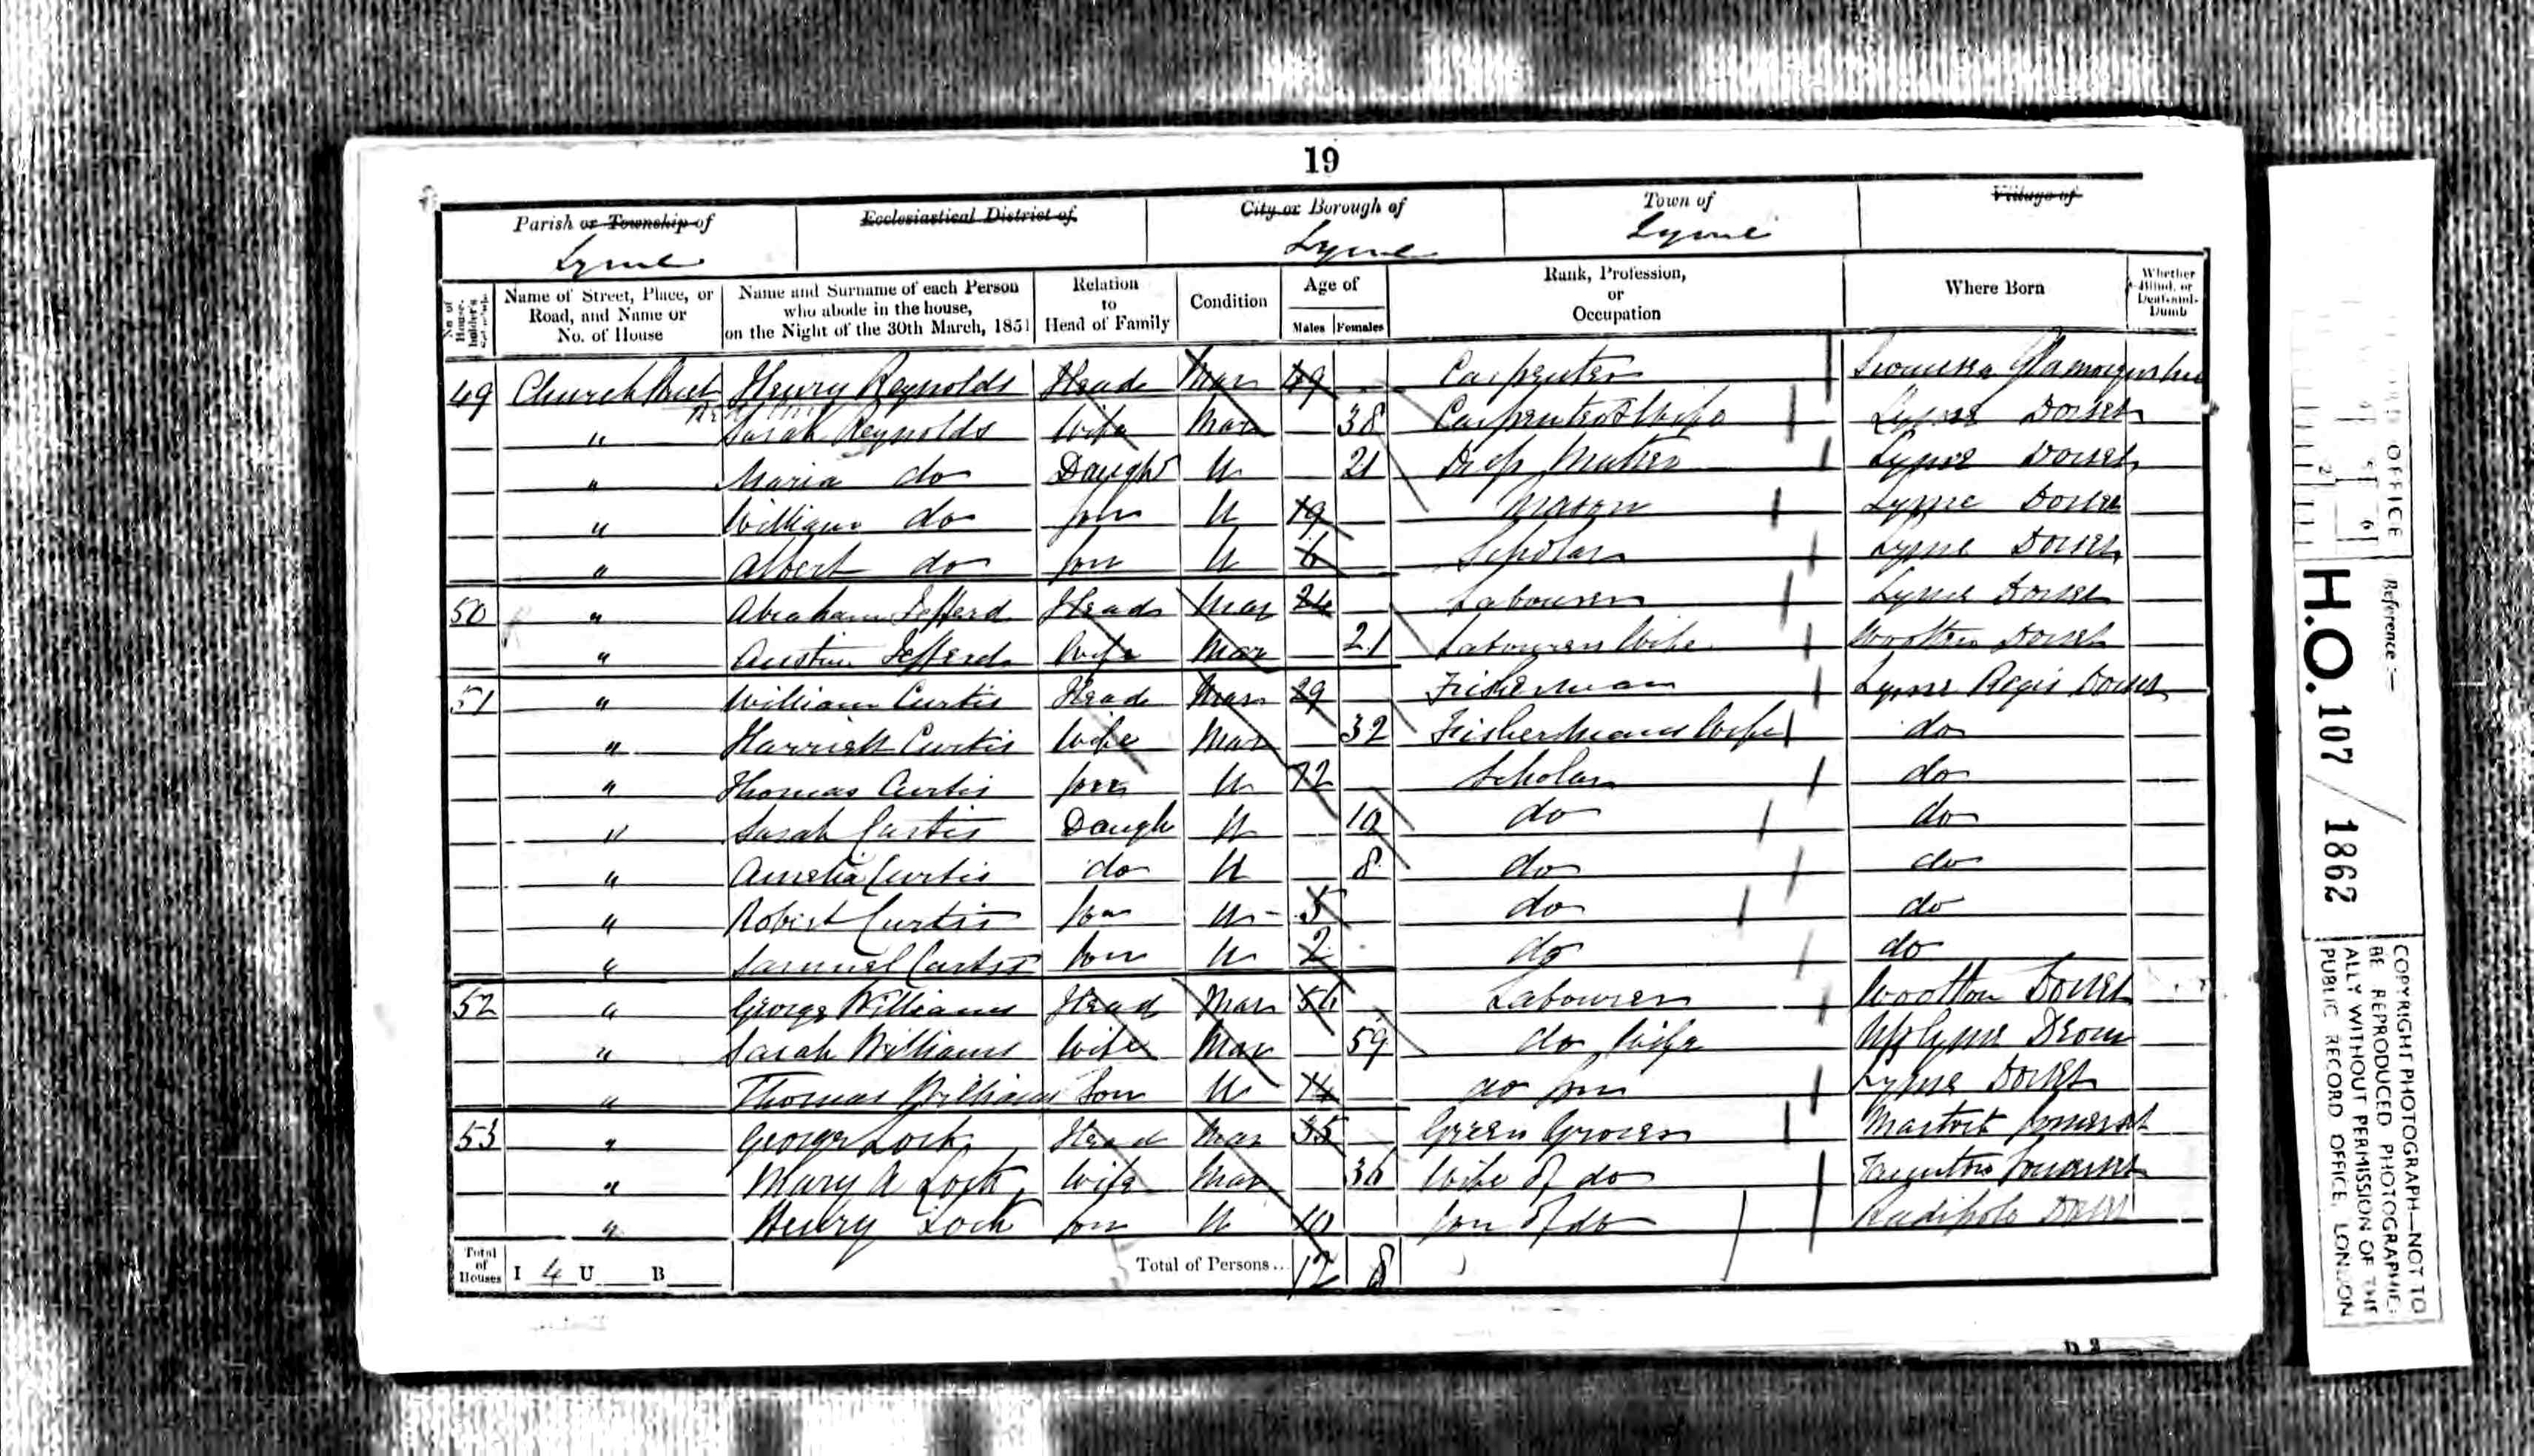 19
Parish or Township of Ecclesiastical District of City or Borough of Town of Village of
Lyme Lyme Lyme
No. of House-holder's Name of Street, Place, or Road, and Name or No. of House Name and Surname of each Person who abode in the house, on the Night of the 30th March, 1851 Relation to Head of Family Condition Age of Males Females Rank, Profession, or Occupation Where Born Whether Blind, or Deaf-and-Dumb
49 Church Street Henry Reynolds Head Mar 49 Carpenter Swansea Glamorganshire
" Sarah Reynolds Wife Mar 38 Carpenters Wife Lyme Dorset
" Maria do Daughr U 21 Dress Maker Lyme Dorset
" William do Son U 19 Mason Lyme Dorset
" Albert do Son U 6 Scholar Lyme Dorset
50 " Abraham Jefferd Head Mar 24 Labourer Lyme Dorset
" Jefferd Wife Mar 21 Labourers Wife Wootton Dorset
51 " William Curtis Head Mar 29 Fisherman Lyme Regis Dorset
" Harriett Curtis Wife Mar 32 Fishermans Wife do
" Thomas Curtis Son U 12 Scholar do
" Sarah Curtis Daugh U 10 do do
" Amelia Curtis do U 8 do do
" Robert Curtis Son U 5 do do
" Samuel Curtis Son U 2 do do
52 " George Williams Head Mar Labourer Wootton Dorset
" Sarah Williams Wife Mar 59 do Wife Uplyme Devon
" Thomas Williams Son U 14 do Son Lyme Dorset
53 " George Lock Head Mar 35 Green Grocer Martock Somerset
" Mary A Lock Wife Mar 36 Wife of do Taunton Somerset
" Henry Lock Son U 10 Son of do Radipole Dorset
Total of Houses I 4 U B Total of Persons... 12 8
OFFICE
Reference :-
H.O. 107 / 1862
COPYRIGHT PHOTOGRAPH—NOT TO
BE REPRODUCED PHOTOGRAPHIC-
ALLY WITHOUT PERMISSION OF THE
PUBLIC RECORD OFFICE, LONDON